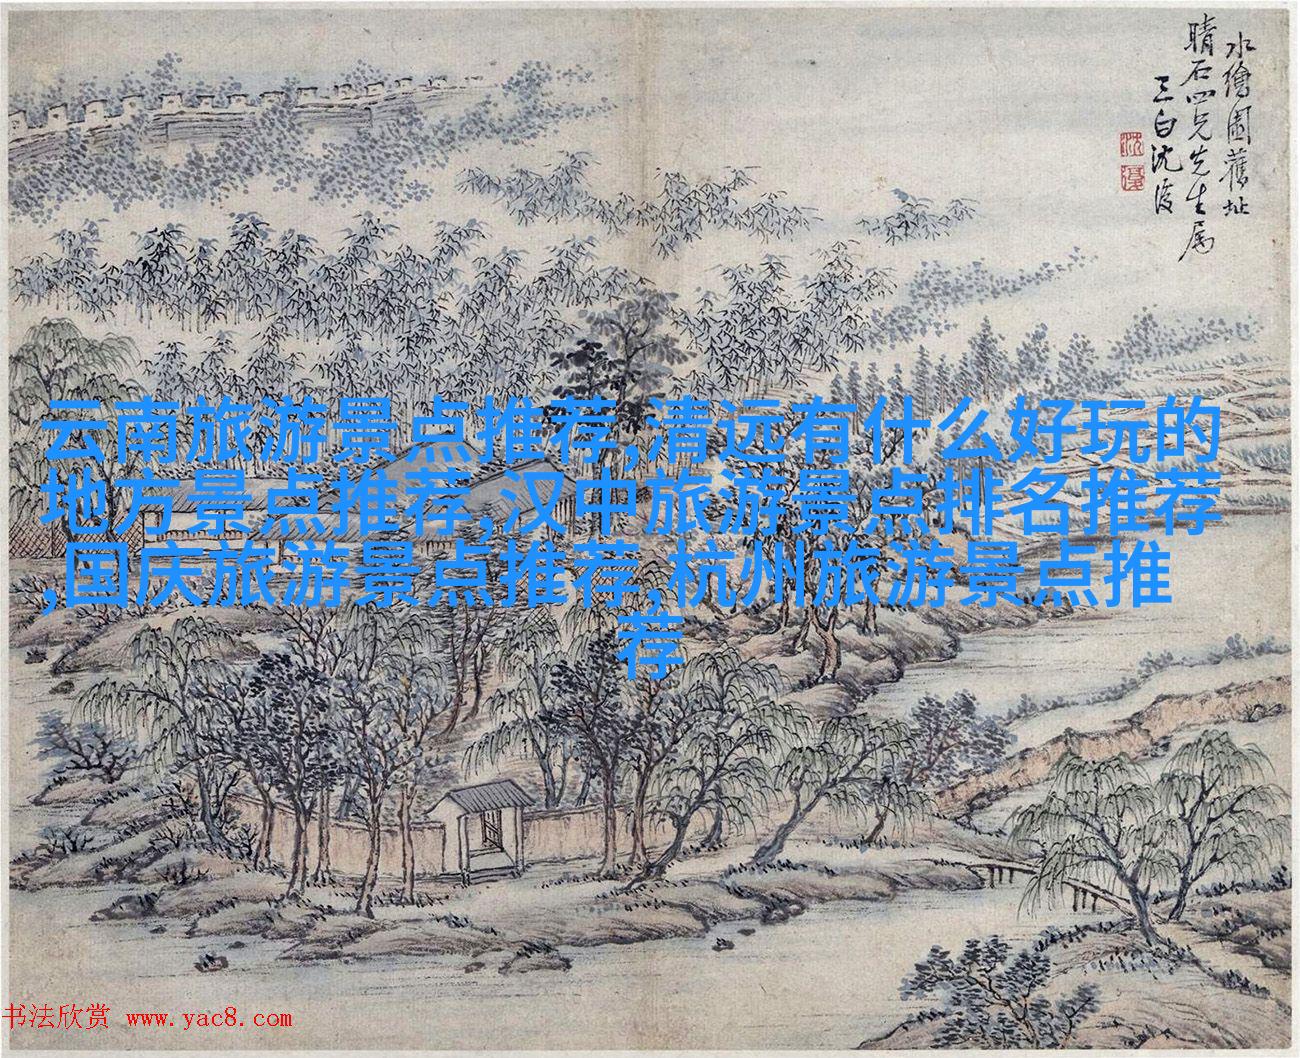 水繪園舊址
晴石四兄先生属
三白沈復
云南旅游景点推荐,清远有什么好玩的
地方景点推荐,汉中旅游景点排名推荐
,国庆旅游景点推荐,杭州旅游景点推
荐
书法欣赏 www.yac8.com